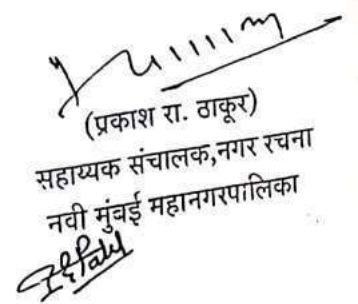 (प्रकाश रा. ठाकूर)
सहाय्यक संचालक,नगर रचना
नवी मुंबई महानगरपालिका